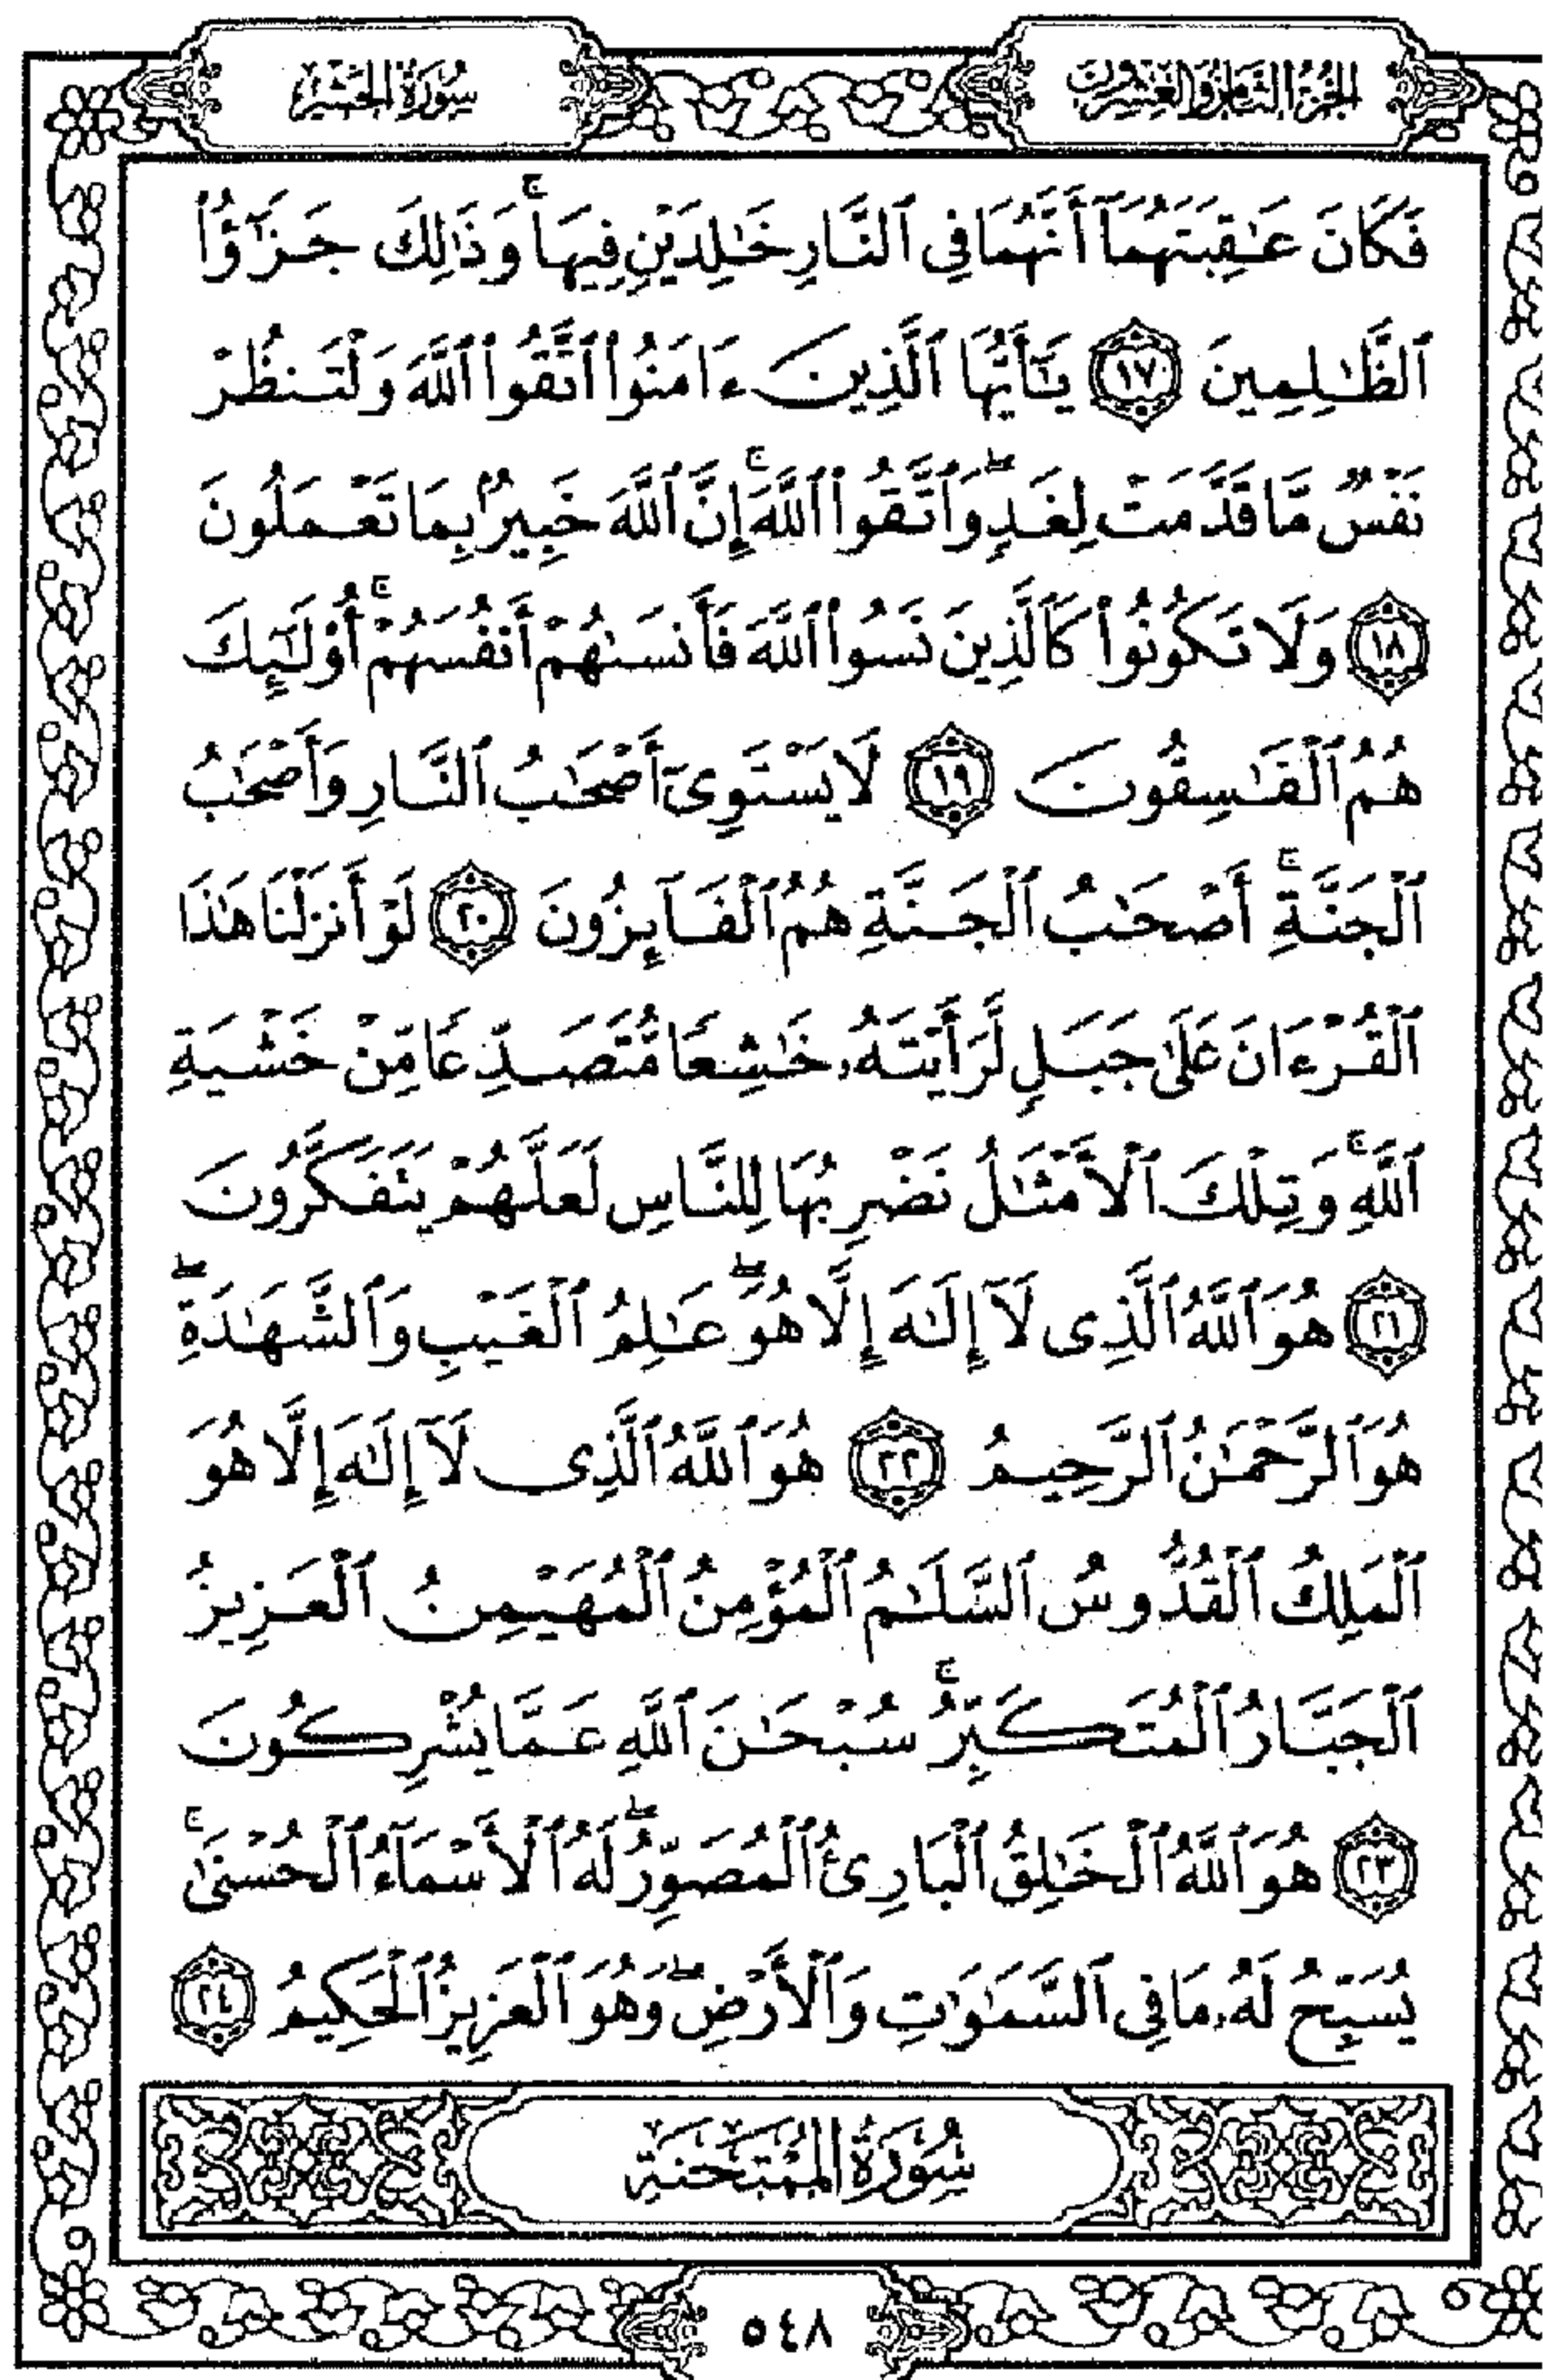 الجزء الثامن والعشرون
سورة الحشر
فَكَانَ عَـٰقِبَتَهُمَآ أَنَّهُمَا فِى ٱلنَّارِ خَـٰلِدَيْنِ فِيهَا ۚ وَذَٰلِكَ جَزَٰٓؤُا۟
ٱلظَّـٰلِمِينَ ١٧ يَـٰٓأَيُّهَا ٱلَّذِينَ ءَامَنُوا۟ ٱتَّقُوا۟ ٱللَّهَ وَلْتَنظُرْ
نَفْسٌ مَّا قَدَّمَتْ لِغَدٍ ۖ وَٱتَّقُوا۟ ٱللَّهَ ۚ إِنَّ ٱللَّهَ خَبِيرٌۢ بِمَا تَعْمَلُونَ
١٨ وَلَا تَكُونُوا۟ كَٱلَّذِينَ نَسُوا۟ ٱللَّهَ فَأَنسَىٰهُمْ أَنفُسَهُمْ ۚ أُو۟لَـٰٓئِكَ
هُمُ ٱلْفَـٰسِقُونَ ١٩ لَا يَسْتَوِىٓ أَصْحَـٰبُ ٱلنَّارِ وَأَصْحَـٰبُ
ٱلْجَنَّةِ ۚ أَصْحَـٰبُ ٱلْجَنَّةِ هُمُ ٱلْفَآئِزُونَ ٢٠ لَوْ أَنزَلْنَا هَـٰذَا
ٱلْقُرْءَانَ عَلَىٰ جَبَلٍ لَّرَأَيْتَهُۥ خَـٰشِعًا مُّتَصَدِّعًا مِّنْ خَشْيَةِ
ٱللَّهِ ۚ وَتِلْكَ ٱلْأَمْثَـٰلُ نَضْرِبُهَا لِلنَّاسِ لَعَلَّهُمْ يَتَفَكَّرُونَ
٢١ هُوَ ٱللَّهُ ٱلَّذِى لَآ إِلَـٰهَ إِلَّا هُوَ ۖ عَـٰلِمُ ٱلْغَيْبِ وَٱلشَّهَـٰدَةِ ۖ
هُوَ ٱلرَّحْمَـٰنُ ٱلرَّحِيمُ ٢٢ هُوَ ٱللَّهُ ٱلَّذِى لَآ إِلَـٰهَ إِلَّا هُوَ
ٱلْمَلِكُ ٱلْقُدُّوسُ ٱلسَّلَـٰمُ ٱلْمُؤْمِنُ ٱلْمُهَيْمِنُ ٱلْعَزِيزُ
ٱلْجَبَّارُ ٱلْمُتَكَبِّرُ ۚ سُبْحَـٰنَ ٱللَّهِ عَمَّا يُشْرِكُونَ
٢٣ هُوَ ٱللَّهُ ٱلْخَـٰلِقُ ٱلْبَارِئُ ٱلْمُصَوِّرُ ۖ لَهُ ٱلْأَسْمَآءُ ٱلْحُسْنَىٰ ۚ
يُسَبِّحُ لَهُۥ مَا فِى ٱلسَّمَـٰوَٰتِ وَٱلْأَرْضِ ۖ وَهُوَ ٱلْعَزِيزُ ٱلْحَكِيمُ ٢٤
سُورَةُ المُمْتَحنَةِ
٥٤٨